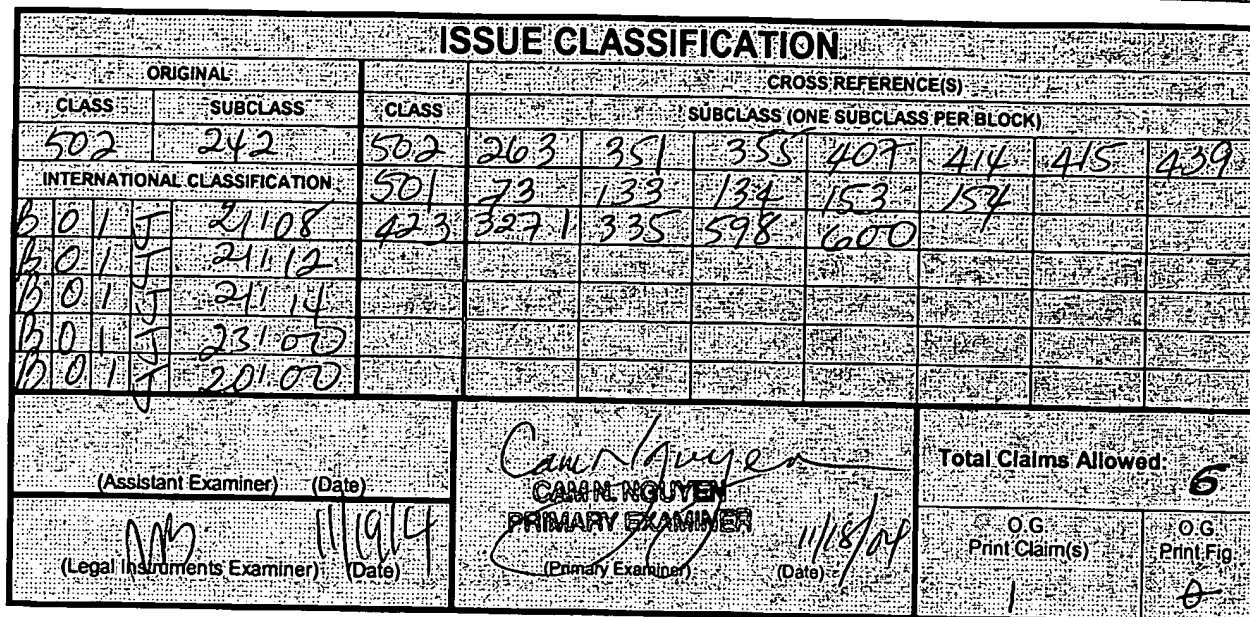 ISSUE CLASSIFICATION
ORIGINAL CROSS REFERENCE(S)
CLASS SUBCLASS CLASS SUBCLASS (ONE SUBCLASS PER BLOCK)
502 242 502 263 351 355 407 414 415 439
INTERNATIONAL CLASSIFICATION 501 73 133 134 153 154
B 0 1 J 21/08 423 327.1 335 598 600
B 0 1 J 21/12
B 0 1 J 21/14
B 0 1 J 23/00
B 0 1 J 20/00
(Assistant Examiner) (Date)
Cam N. Nguyen
CAM N. NGUYEN
PRIMARY EXAMINER
(Primary Examiner) (Date) 11/18/04
Total Claims Allowed: 6
(Legal Instruments Examiner) (Date)
O.G. Print Claim(s) 1
O.G. Print Fig.